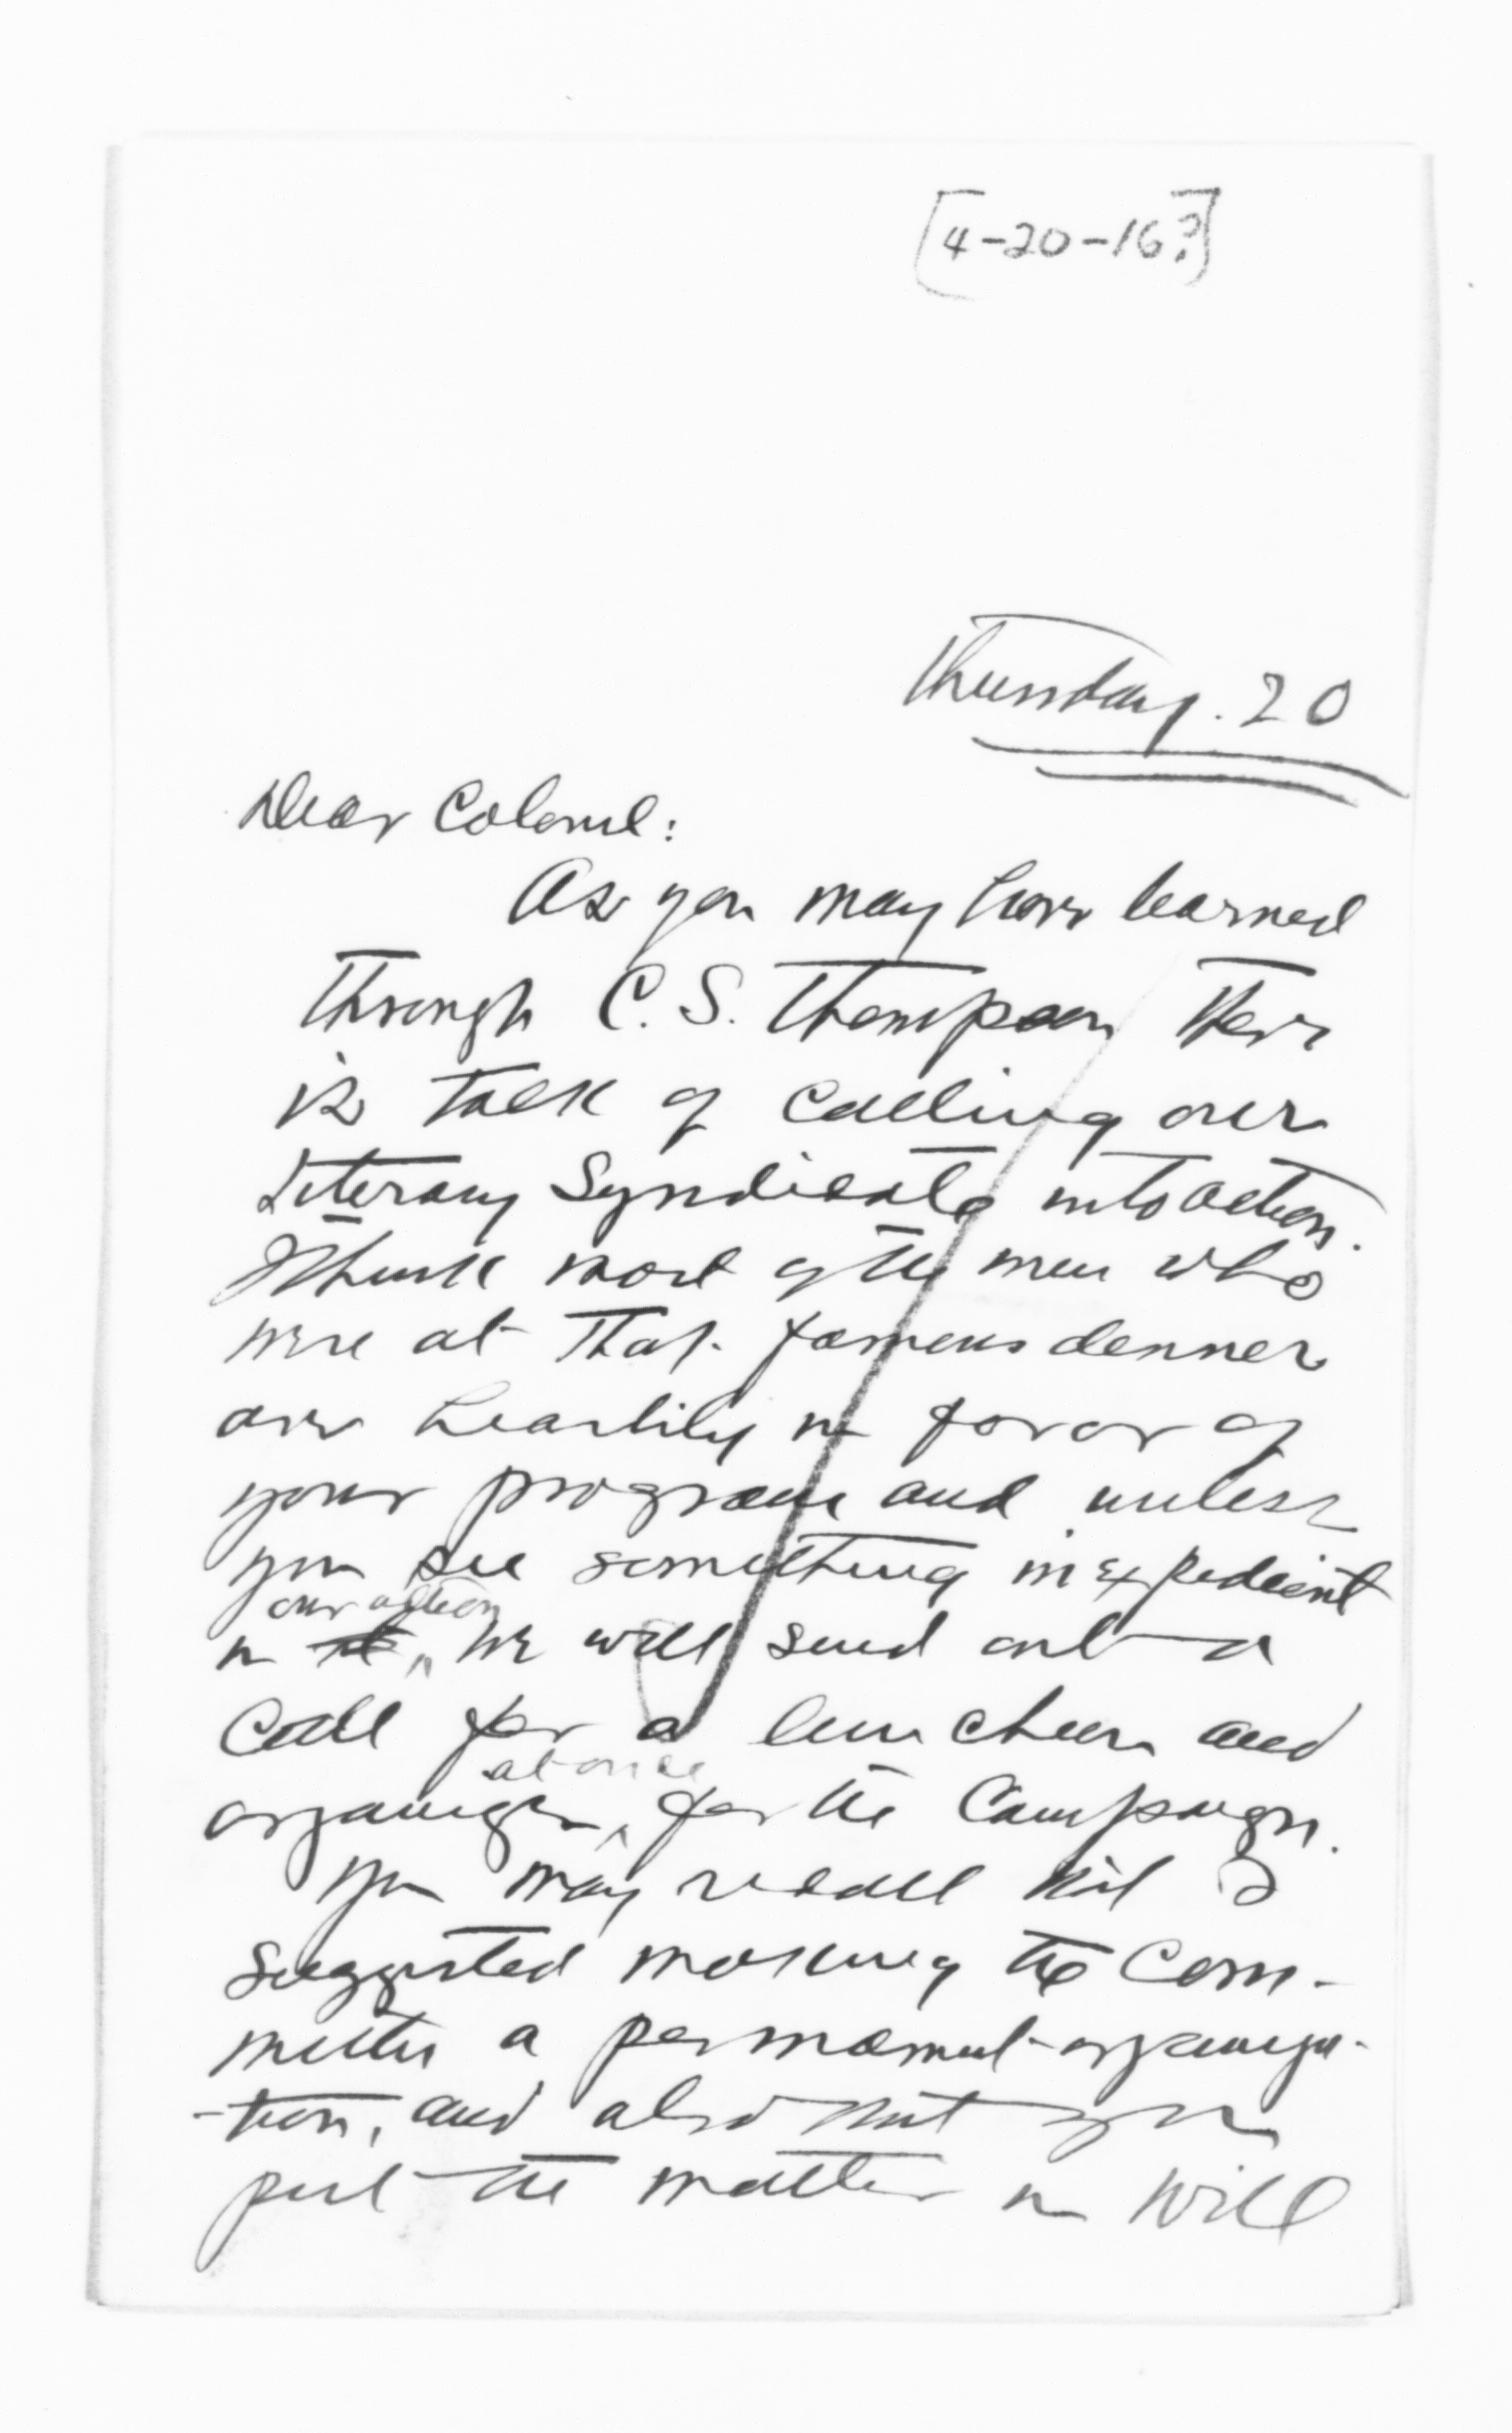 [4-20-16?]
Thursday. 20
Dear Colonel:
As you may have learned
through C. S. Thompson there
is talk of calling our
Literary Syndicate into action.
I think most of the men who
were at that famous dinner
are heartily in favor of
your program and unless
you see something inexpedient
our action
in it, we will send out a
call for a luncheon and
at once
organize, for the Campaign.
You may recall that I
suggested making the Com-
mittee a permanent organiza-
-tion, and also that you
put the matter in Will